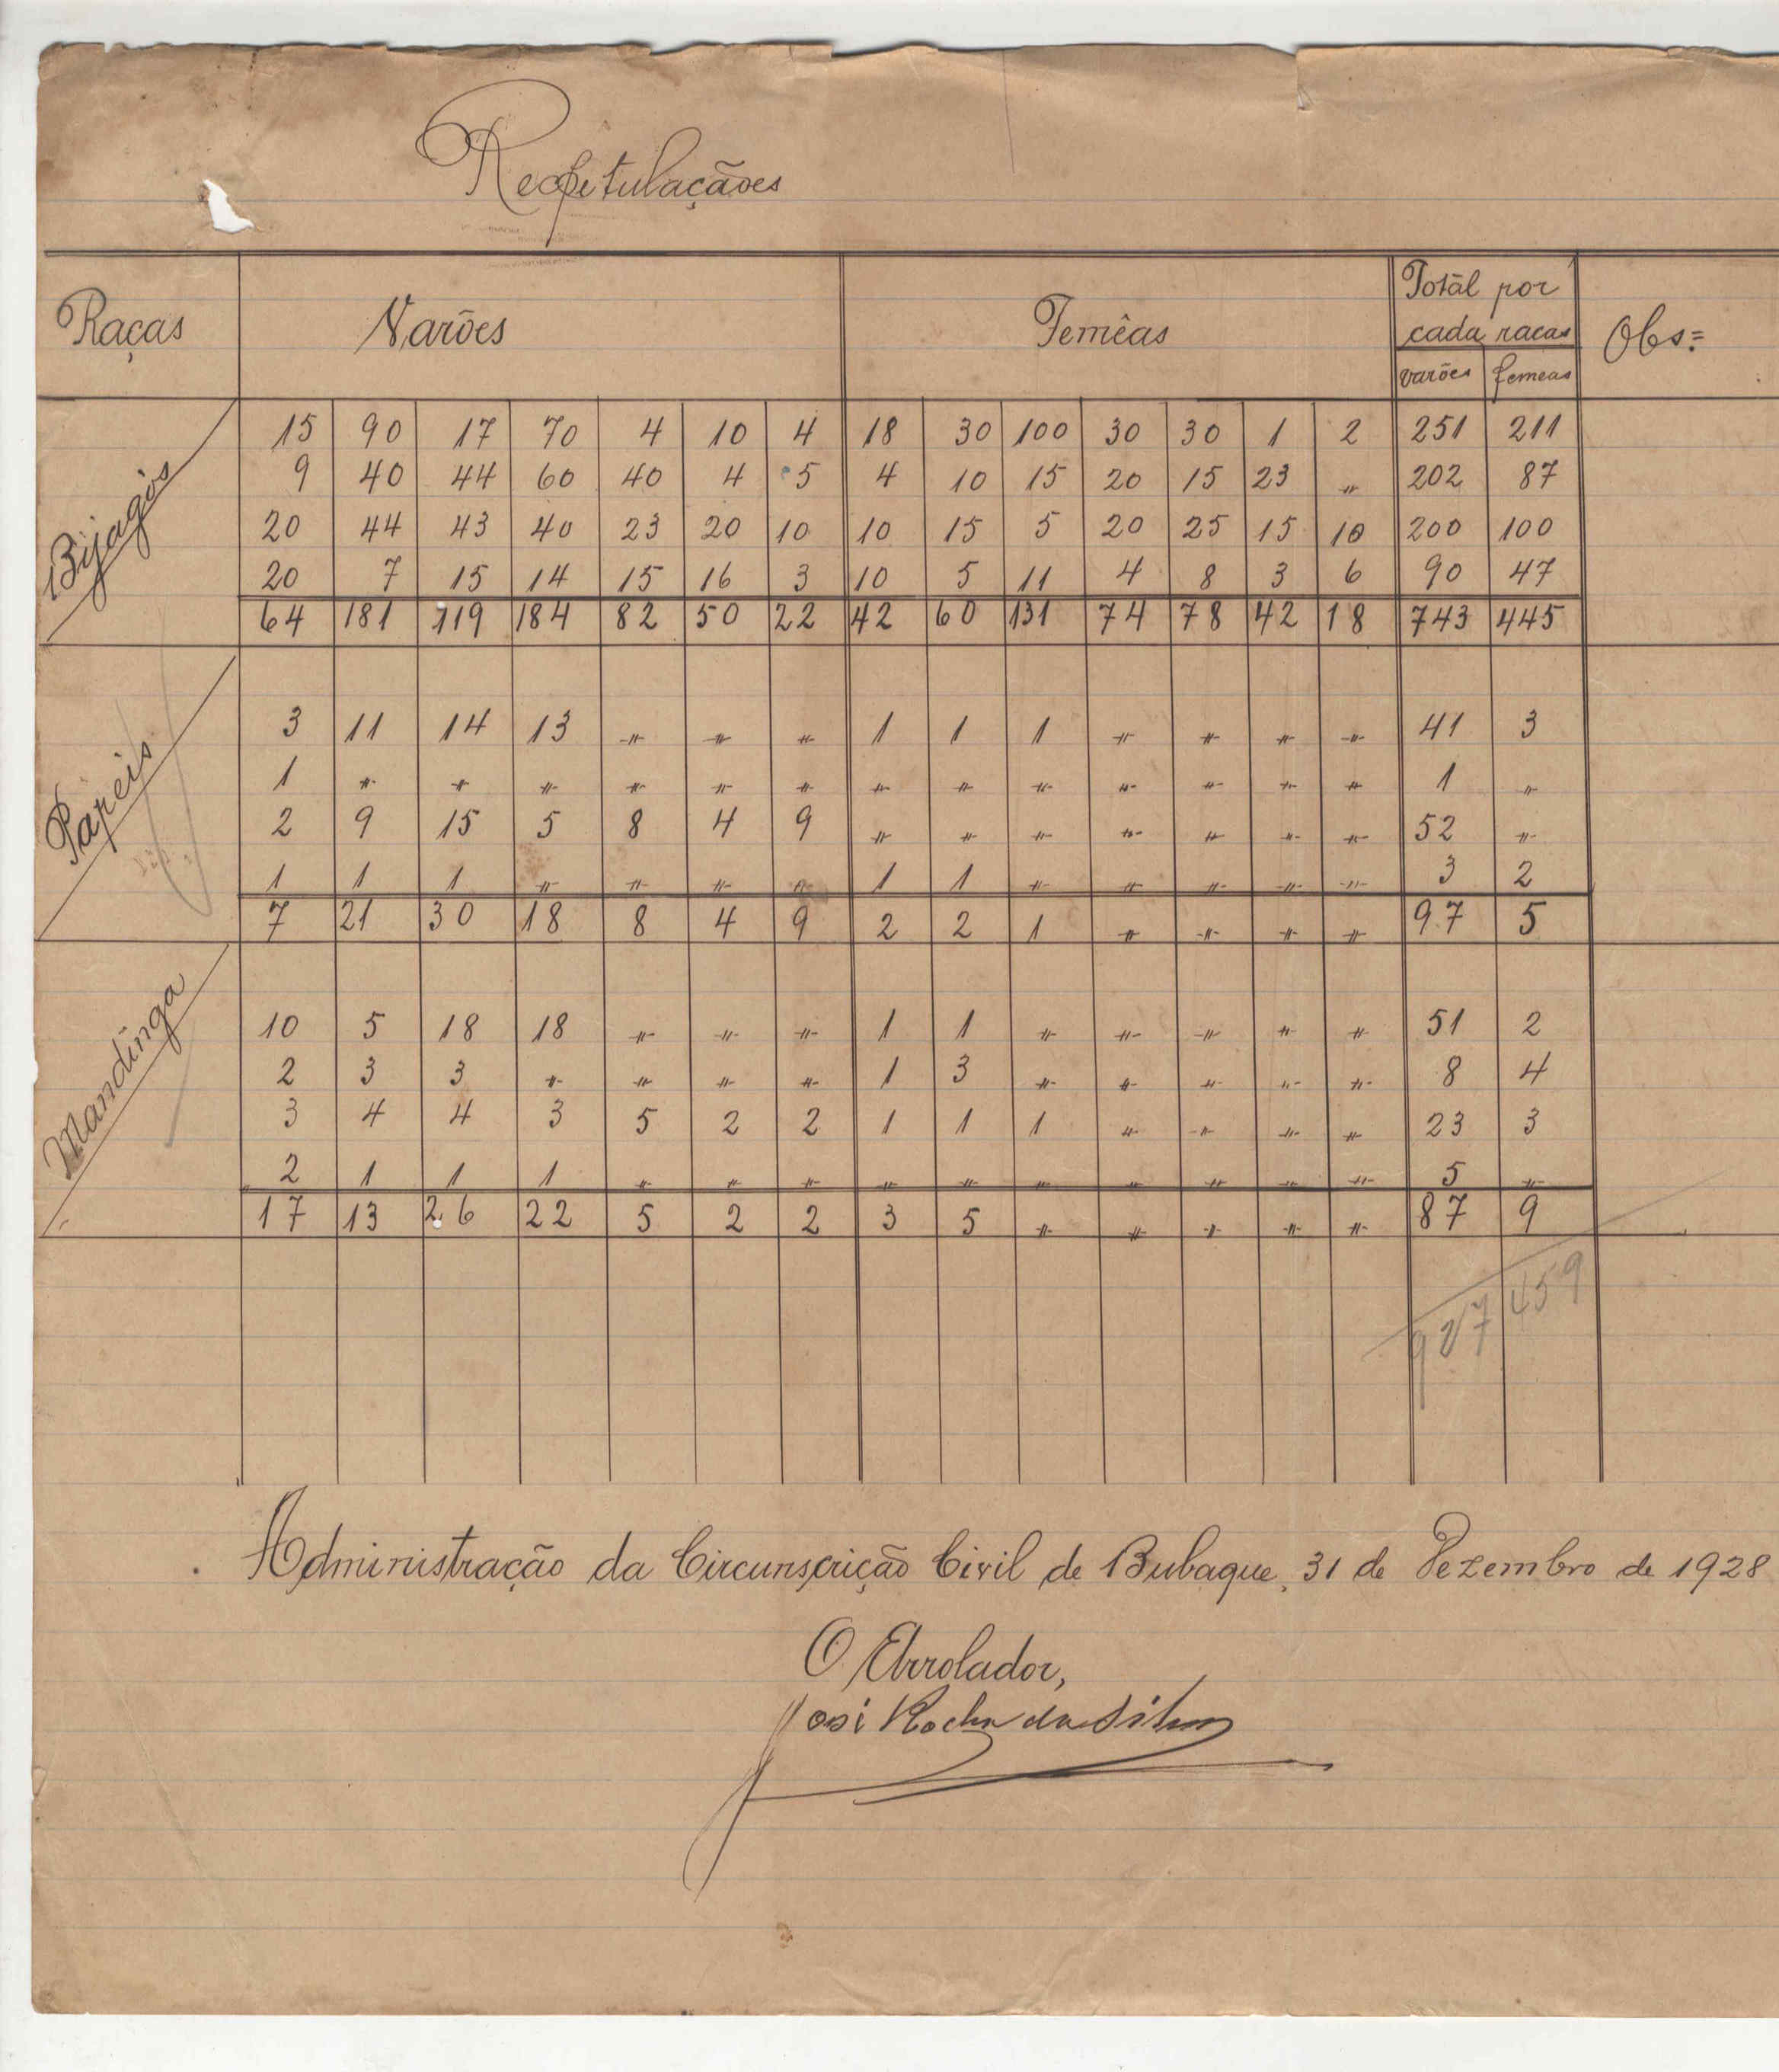 Recapitulaçãoes
Raças Varões Femêas Totál por cada racas Obs:
varões femeas
Bijagós
15 90 17 70 4 10 4 18 30 100 30 30 1 2 251 211
9 40 44 60 40 4 5 4 10 15 20 15 23 " 202 87
20 44 43 40 23 20 10 10 15 5 20 25 15 10 200 100
20 7 15 14 15 16 3 10 5 11 4 8 3 6 90 47
64 181 119 184 82 50 22 42 60 131 74 78 42 18 743 445
Papeis
3 11 14 13 " " " 1 1 1 " " " " 41 3
1 " " " " " " " " " " " " " 1 "
2 9 15 5 8 4 9 " " " " " " " 52 "
1 1 1 " " " " 1 1 " " " " " 3 2
7 21 30 18 8 4 9 2 2 1 " " " " 97 5
Mandinga
10 5 18 18 " " " 1 1 " " " " " 51 2
2 3 3 " " " " 1 3 " " " " " 8 4
3 4 4 3 5 2 2 1 1 1 " " " " 23 3
2 1 1 1 " " " " " " " " " " 5 "
17 13 26 22 5 2 2 3 5 " " " " " 87 9
927 459
Administração da Circunscrição Civil de Bubaque, 31 de Dezembro de 1928
O Arrolador,
José Rocha da Silva